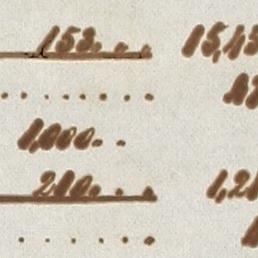 153. . . 15,15
1,000. .
210. . . 1,21